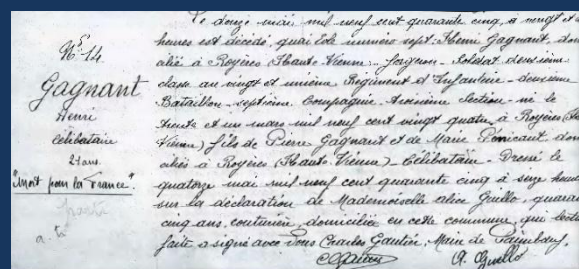 N° 14
Gagnant
Henri
Célibataire
21 ans
"Mort pour la France".
Le douze mai mil neuf cent quarante cinq, à vingt et
heures est décédé, quai Éole numéro sept. Henri Gagnant, dom
cilié à Royères (Haute Vienne) Soldat deuxième
classe au vingt et unième Régiment d'Infanterie - deuxième
Bataillon - septième Compagnie troisième Section - né le
trente et un mars mil neuf cent vingt quatre à Royères (Hte
Vienne) fils de Pierre Gagnant et de Marie Pénicaut dom
ciliés à Royères (Haute Vienne) Célibataire - Dressé le
quatorze mai mil neuf cent quarante cinq à seize heures
sur la déclaration de Mademoiselle Alice Guillo, quarante
cinq ans, couturière, domiciliée en cette commune, qui lecture
faite a signé avec Nous Charles Gautier, Maire de Paimboeuf,
A. Guillo